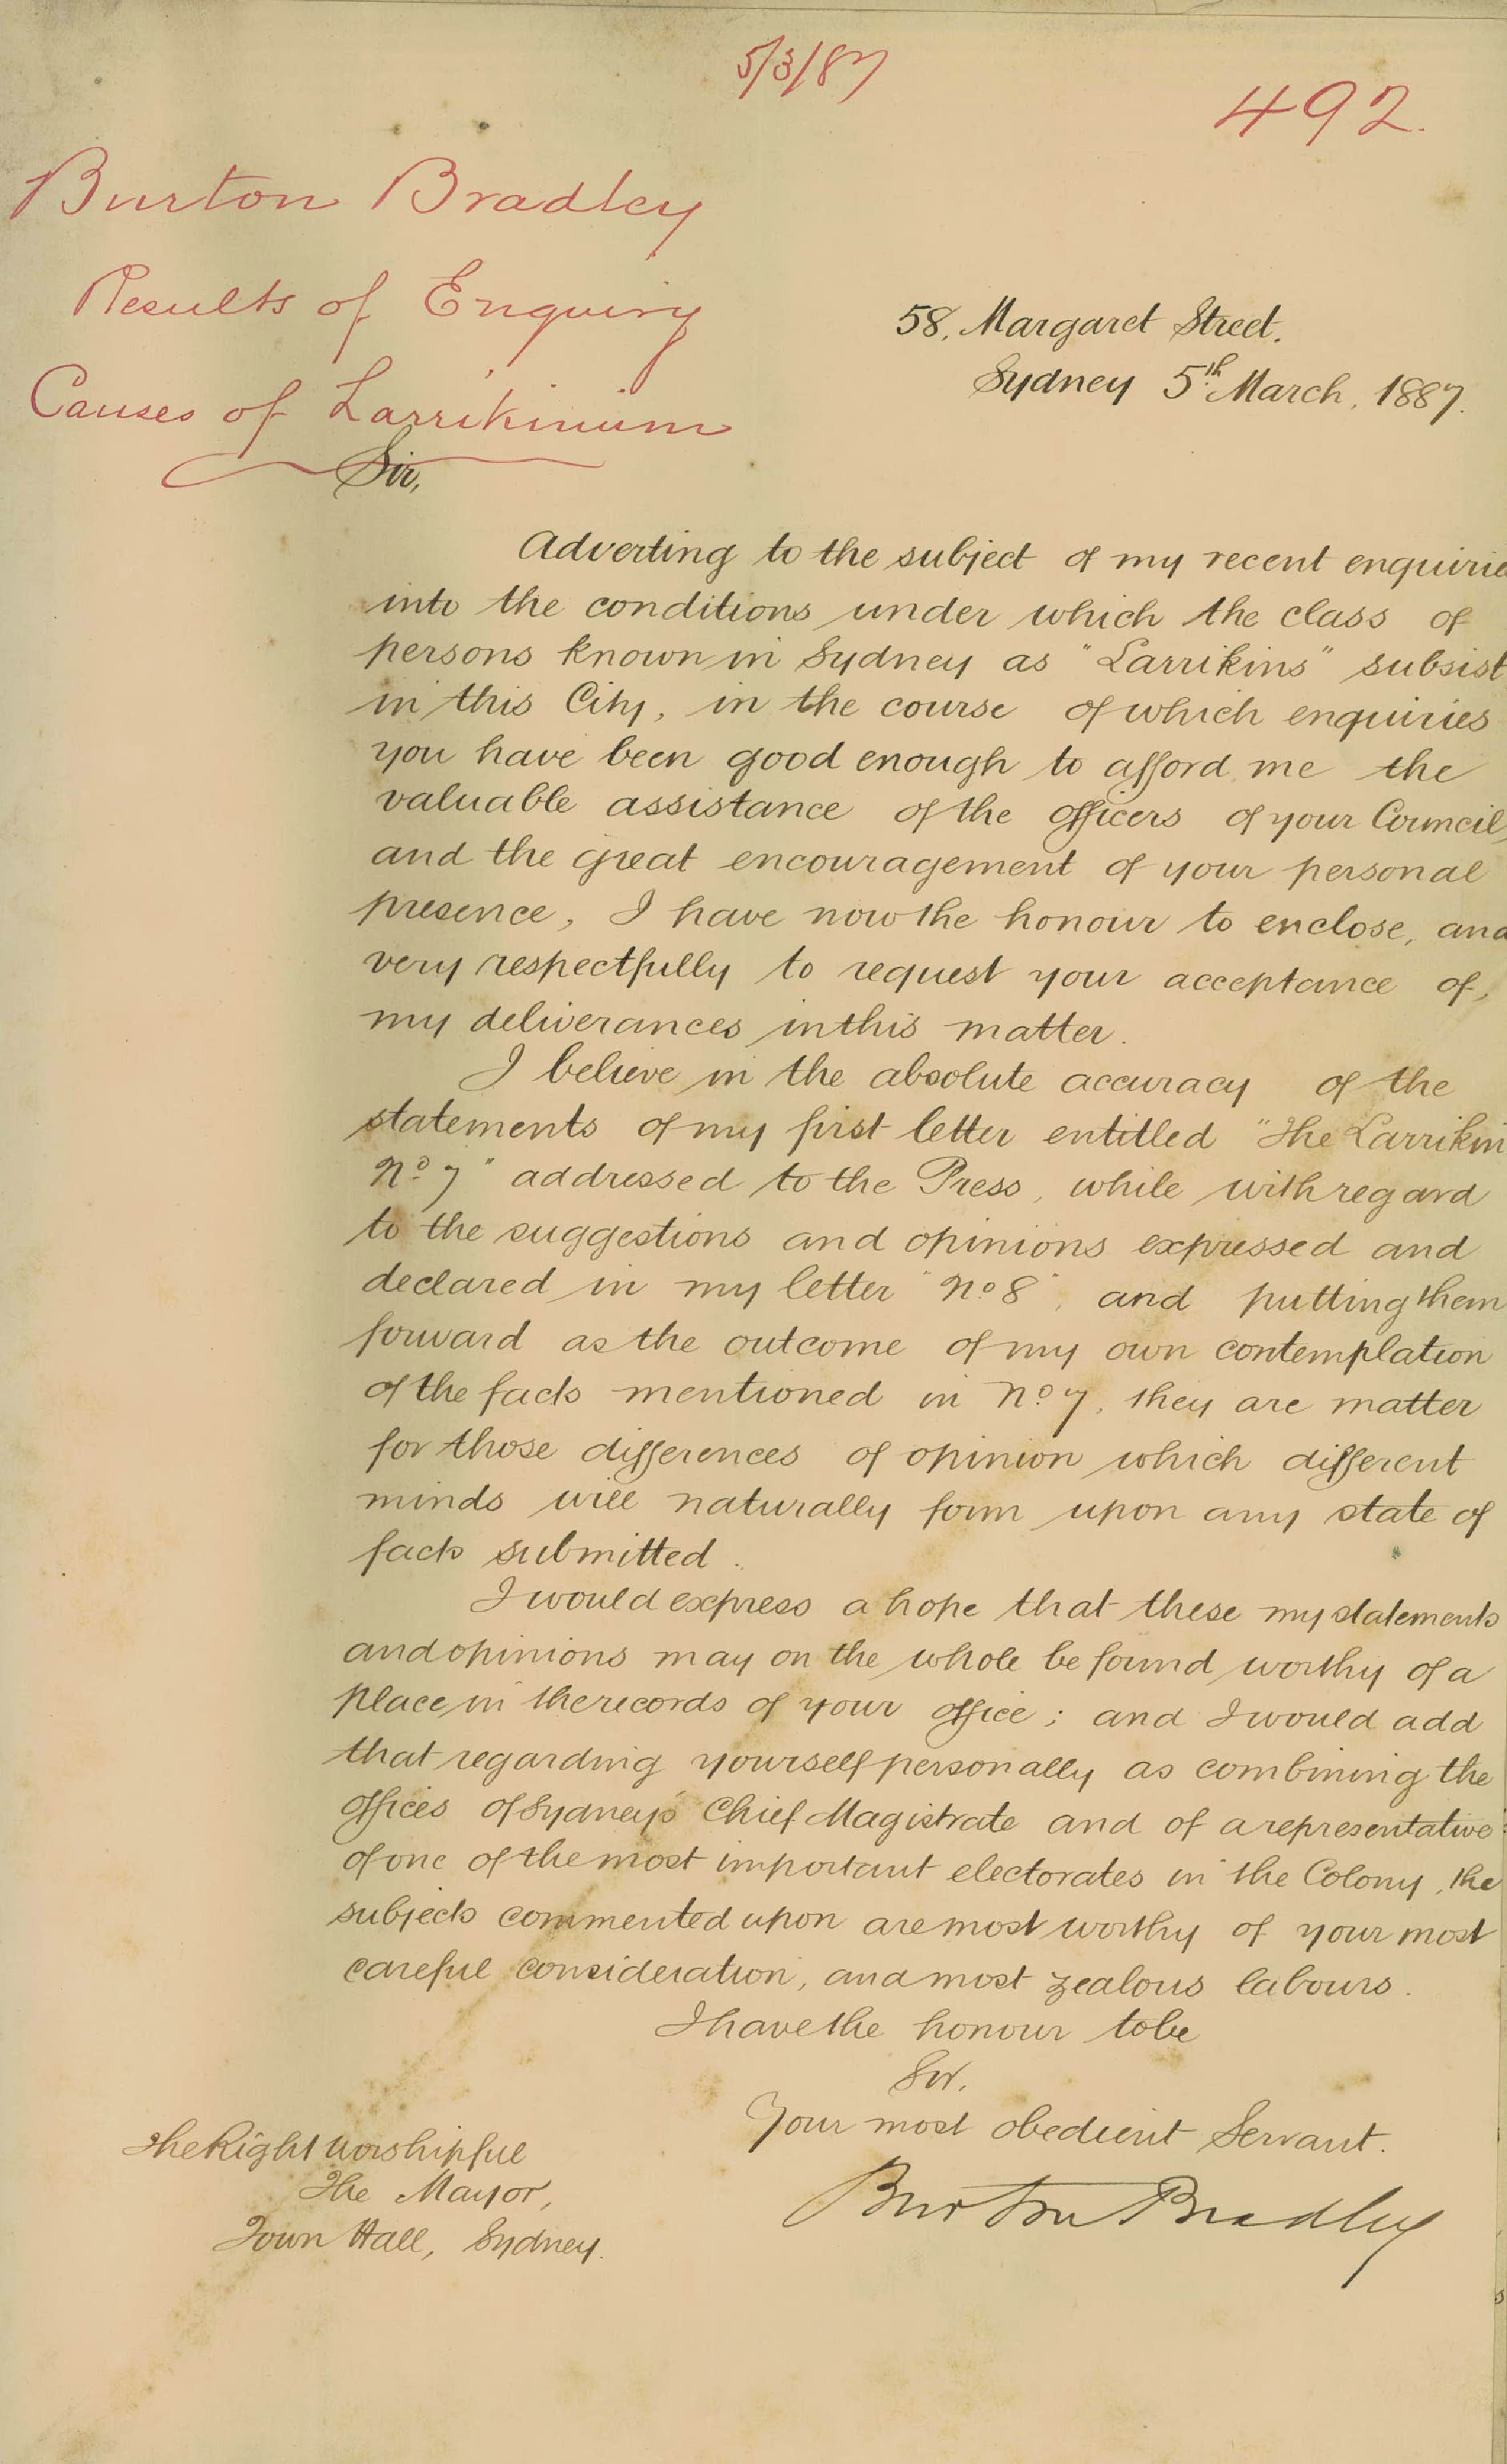 5/3/87
492.
Burton Bradley
Results of Enquiry
Causes of Larrikinism
58, Margaret Street.
Sydney 5th March, 1887.
Sir,
Adverting to the subject of my recent enquirie
into the conditions under which the class of
persons known in Sydney as "Larrikins" subsist
in this City, in the course of which enquiries
you have been good enough to afford me the
valuable assistance of the officers of your Council,
and the great encouragement of your personal
presence, I have now the honour to enclose, and
very respectfully to request your acceptance of,
my deliverances in this matter.
I believe in the absolute accuracy of the
statements of my first letter entitled "The Larrikin
No 7" addressed to the Press, while with regard
to the suggestions and opinions expressed and
declared in my letter "No 8", and putting them
forward as the outcome of my own contemplation
of the facts mentioned in No 7, they are matter
for those differences of opinion which different
minds will naturally form upon any state of
facts submitted.
I would express a hope that these my statements
and opinions may on the whole be found worthy of a
place in the records of your office; and I would add
that regarding yourself personally as combining the
offices of Sydney's Chief Magistrate and of a representative
of one of the most important electorates in the Colony, the
subjects commented upon are most worthy of your most
careful consideration, and most zealous labours.
I have the honour to be
Sir,
Your most obedient Servant.
Burton Bradley
The Right Worshipful
The Mayor,
Town Hall, Sydney.